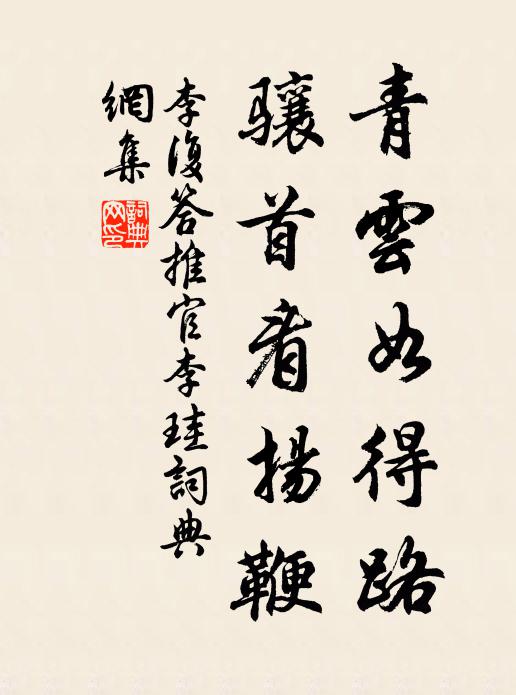 青雲如得路
驤首看揚鞭
李復答推官李珪詞典
網集
詞典网印